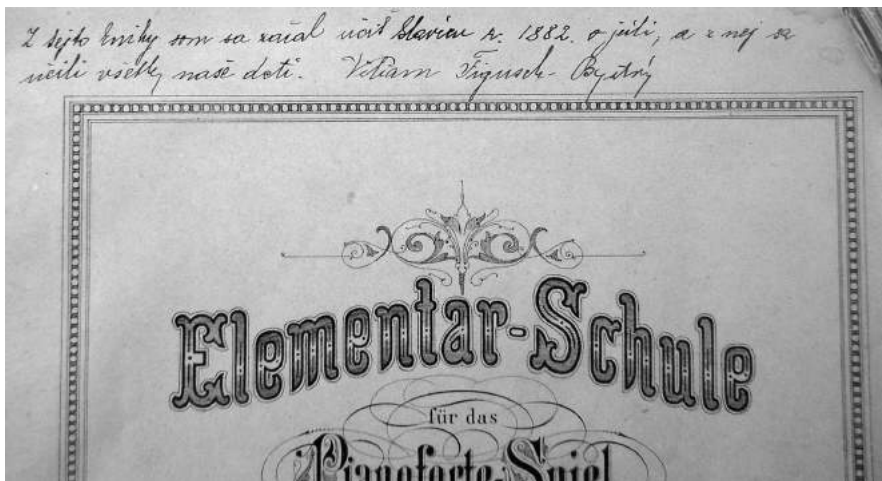 Z tejto knihy som sa začal učiť klavíru r. 1882. o júli, a z nej sa
učili všetky naše deti. Viliam Figusch-Bystrý
Elementar-Schule
für das
Pianoforte-Spiel